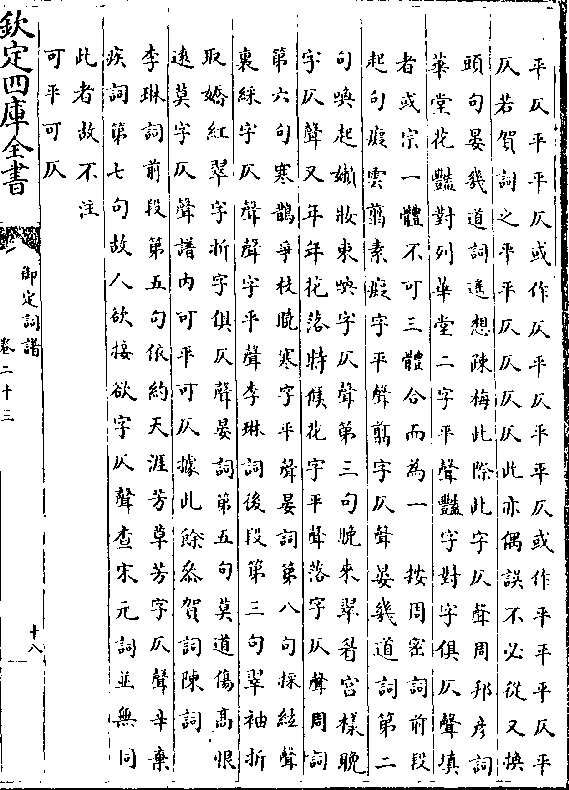 平仄平平仄或作仄平仄平平仄或作平平平仄平
仄若賀詞之平平仄仄仄仄此亦偶誤不必從又換
頭句晏幾道詞遙想疎梅此際此字仄聲周邦彦詞
華堂花豔對列華堂二字平聲豔字對字俱仄聲填
者或宗一體不可三體合而為一　按周密詞前段
起句癡雲翦素癡字平聲翦字仄聲晏幾道詞第二
句喚起嬾妝束喚字仄聲第三句晚來翠眉宮樣晚
字仄聲又年年花落時候花字平聲落字仄聲周詞
第六句寒鵲爭枝曉寒字平聲晏詞第八句採絃聲
裏綵字仄聲聲字平聲李琳詞後段第三句翠袖折
取嬌紅翠字折字俱仄聲晏詞第五句莫道傷高恨
逺莫字仄聲譜内可平可仄據此餘叅賀詞陳詞
李琳詞前段第五句依約天涯芳草芳字仄聲辛棄
疾詞第七句故人欲接欲字仄聲查宋元詞並無同
此者故不注
可平可仄
欽定四庫全書
御定詞譜
卷二十三
十八